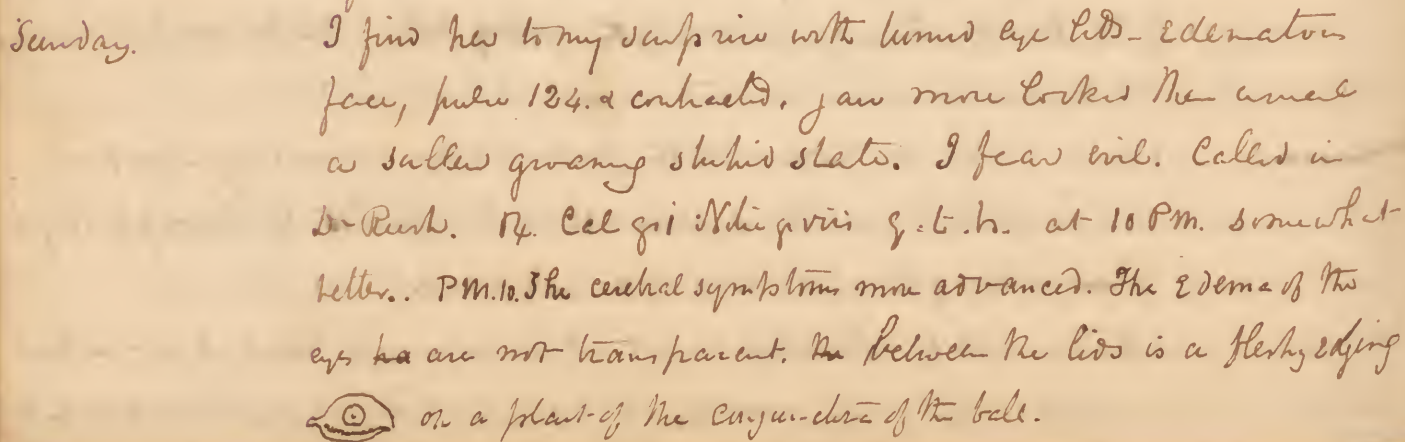 Sunday. I find her to my surprise with tumid eye lids - Edematous
face, pulse 124. & contracted. jaw more locked than usual
a sullen groaning stupid state. I fear evil. Called in
Dr Rush. Rx. Cal gri Nitri gviii q.t.h. at 10 PM. somewhat
better.. PM.10. The cerebral symptoms more advanced. The Edema of the
eyes are not transparent. between the lids is a fleshy edging
or a plait of the conjunctiva of the ball.